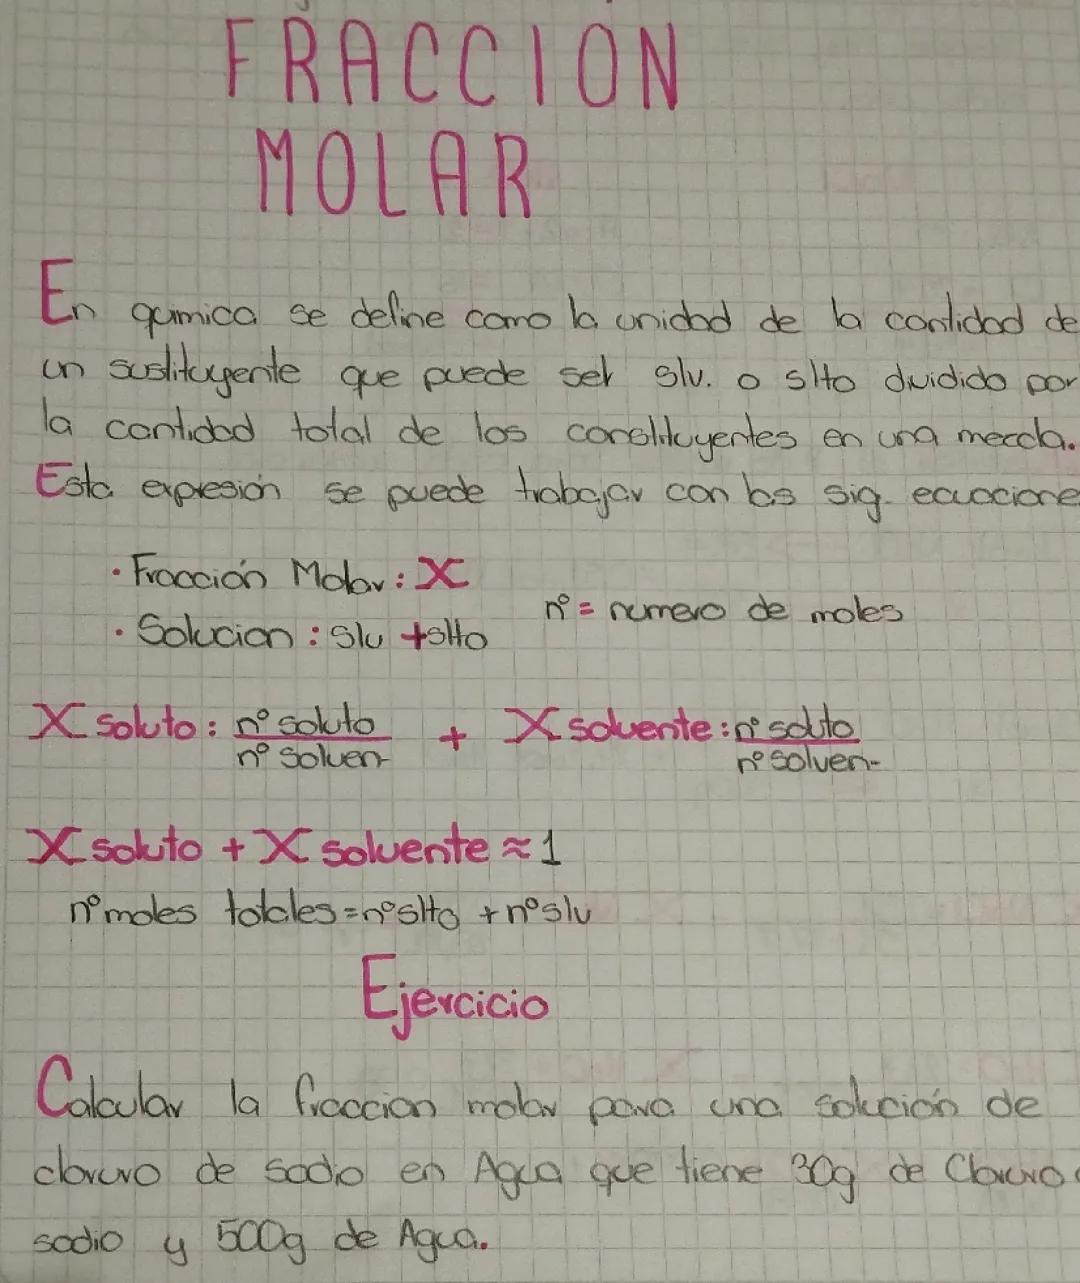 FRACCION
MOLAR
En quimica se define como la unidad de la cantidad de
un sustituyente que puede ser slv. o slto dividido por
la cantidad total de los constituyentes en una mezcla.
Esta expresión se puede trabajar con las sig. ecuacione
· Fracción Molar: X
n° = numero de moles
· Solucion : slv + slto
X soluto : n° soluto + X solvente : n° soluto
n° solven n° solven-
X soluto + X solvente ≈ 1
n° moles totales = n° slto + n° slv
Ejercicio
Calcular la fraccion molar para una solución de
cloruro de sodio en Agua que tiene 30g de Cloruro
sodio y 500g de Agua.